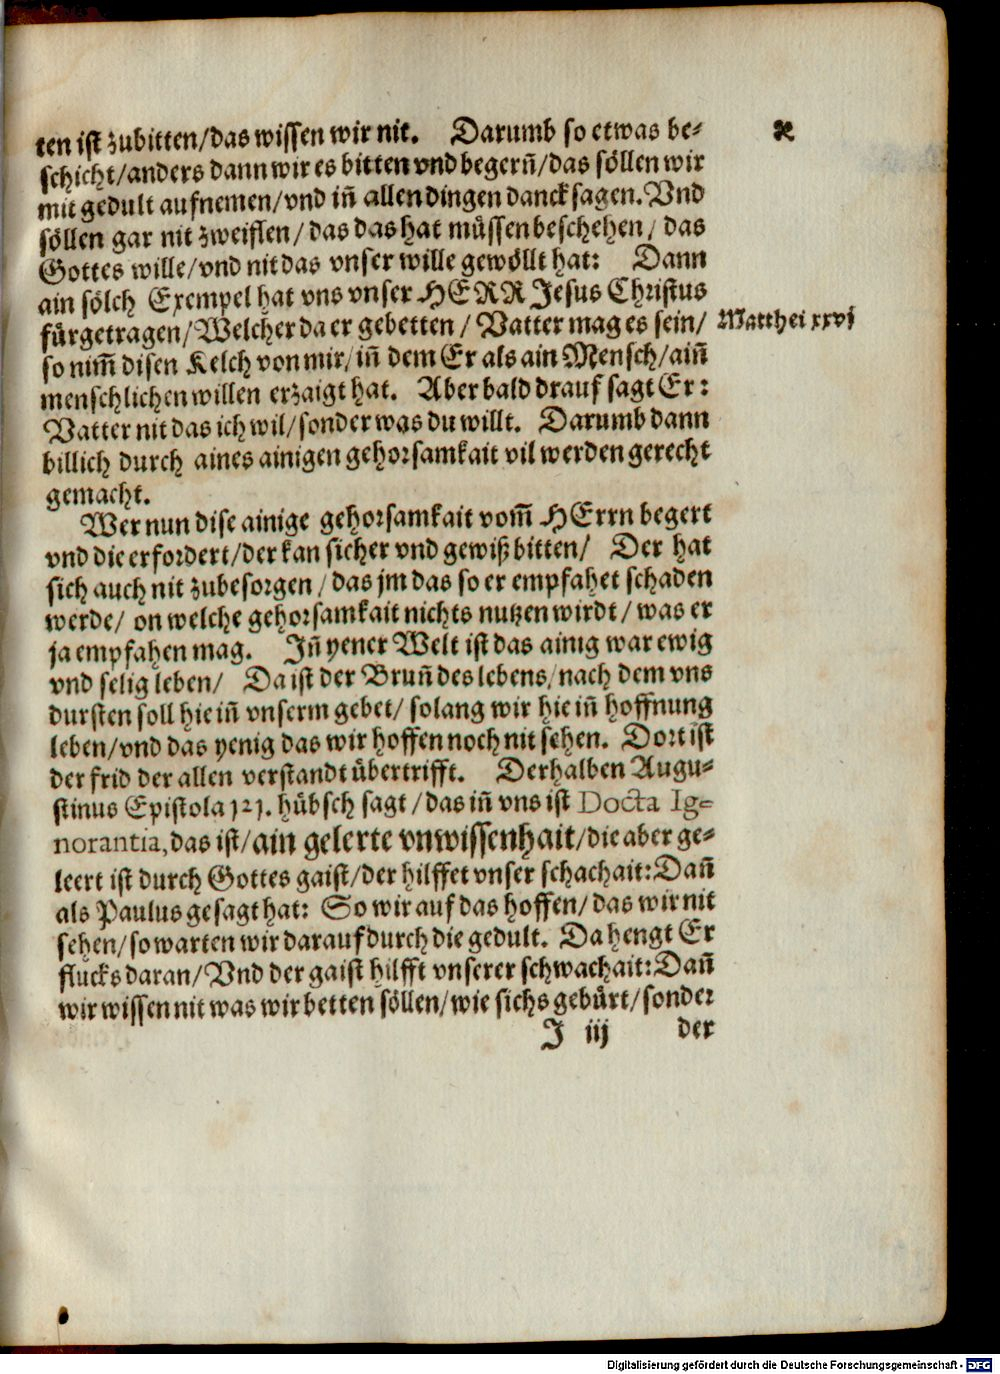 ten ist zubitten/das wissen wir nit. Darumb so etwas be⸗
schicht/anders dann wir es bitten vnd begern̄/das söllen wir
mit gedult aufnemen/vnd in̄ allen dingen danck sagen. Vnd
söllen gar nit zweiflen/das das hat müssen beschehen/das
Gottes wille/vnd nit das vnser wille gewöllt hat: Dann
ain sölch Exempel hat vns vnser HERR Jesus Christus
fürgetragen/Welcher da er gebetten/Vatter mag es sein/
Matthei xxvj
so nim̄ disen Kelch von mir/in̄ dem Er als ain Mensch/ain̄
menschlichen willen erzaigt hat. Aber bald drauf sagt Er:
Vatter nit das ich wil/sonder was du willt. Darumb dann
billich durch aines ainigen gehorsamkait vil werden gerecht
gemacht.
Wer nun dise ainige gehorsamkait vom̄ HErrn begert
vnd die erfordert/der kan sicher vnd gewiß bitten/ Der hat
sich auch nit zubesorgen/das jm das so er empfahet schaden
werde/on welche gehorsamkait nichts nutzen wirdt/was er
ja empfahen mag. Jn̄ yener Welt ist das ainig war ewig
vnd selig leben/ Da ist der Brun̄ des lebens/nach dem vns
dursten soll hie in̄ vnserm gebet/solang wir hie in̄ hoffnung
leben/vnd das yenig das wir hoffen noch nit sehen. Dort ist
der frid der allen verstandt übertrifft. Derhalben Augu⸗
stinus Epistola 121. hübsch sagt/das in̄ vns ist Docta Ig⸗
norantia, das ist/ain gelerte vnwissenhait/die aber ge⸗
leert ist durch Gottes gaist/der hilffet vnser schachait: Dan̄
als Paulus gesagt hat: So wir auf das hoffen/das wir nit
sehen/so warten wir darauf durch die gedult. Da hengt Er
flucks daran/Vnd der gaist hilfft vnserer schwachait: Dan̄
wir wissen nit was wir betten söllen/wie sichs gebürt/sonder
J iij der
Digitalisierung gefördert durch die Deutsche Forschungsgemeinschaft - DFG